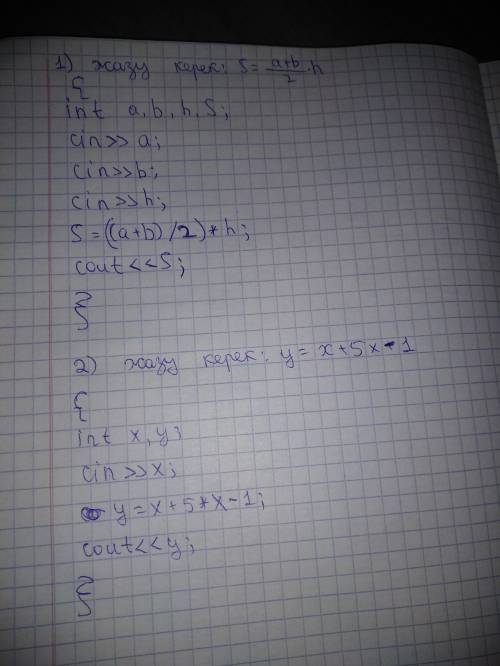 1) жазу керек: S = (a+b)/2 · h
{
int a, b, h, S;
cin>>a;
cin>>b;
cin>>h;
S = ((a+b)/2)*h;
cout<<S;
}
2) жазу керек: y = x+5x-1
{
int x, y;
cin>>x;
y = x+5*x-1;
cout<<y;
}